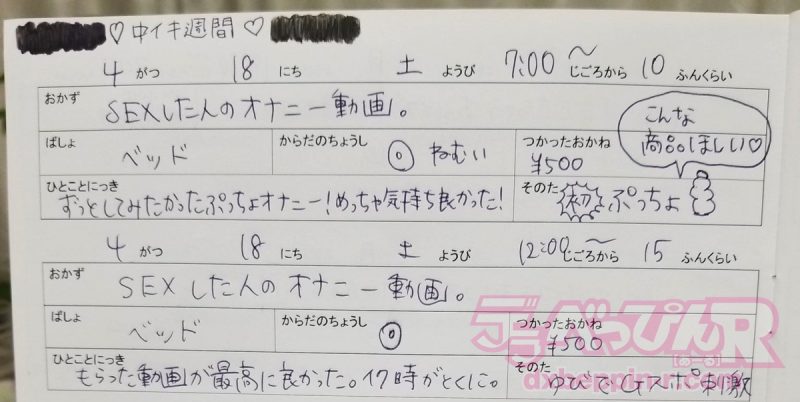 ♡中イキ週間♡
4 がつ 18 にち 土 ようび 7:00〜 じごろから 10 ふんくらい
おかず SEXした人のオナニー動画。
こんな
商品ほしい♡
ばしょ ベッド からだのちょうし ◎ ねむい つかったおかね ¥500
ひとことにっき ずっとしてみたかったぷっちょオナニー!めっちゃ気持ち良かった! そのた 初 ぷっちょ
4 がつ 18 にち 土 ようび 12:00〜 じごろから 15 ふんくらい
おかず SEXした人のオナニー動画。
ばしょ ベッド からだのちょうし ◎ つかったおかね ¥500
ひとことにっき もらった動画が最高に良かった。17時がとくに。 そのた ゆびでGスポ刺激
デラべっぴんR
[あーる]
dxbeppin-r.com